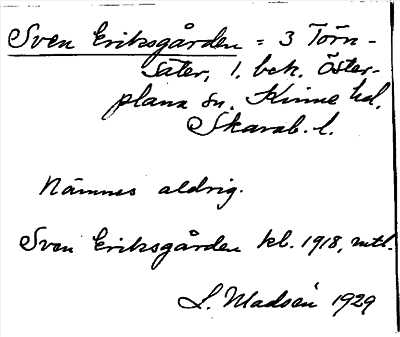 Sven Eriksgården = 3 Törn-
säter, 1. bek. Öster-
plana sn. Kinne hd.
Skarab. l.
Nämnes aldrig.
Sven Eriksgården kl. 1918, mtl.
L. Madsén 1929